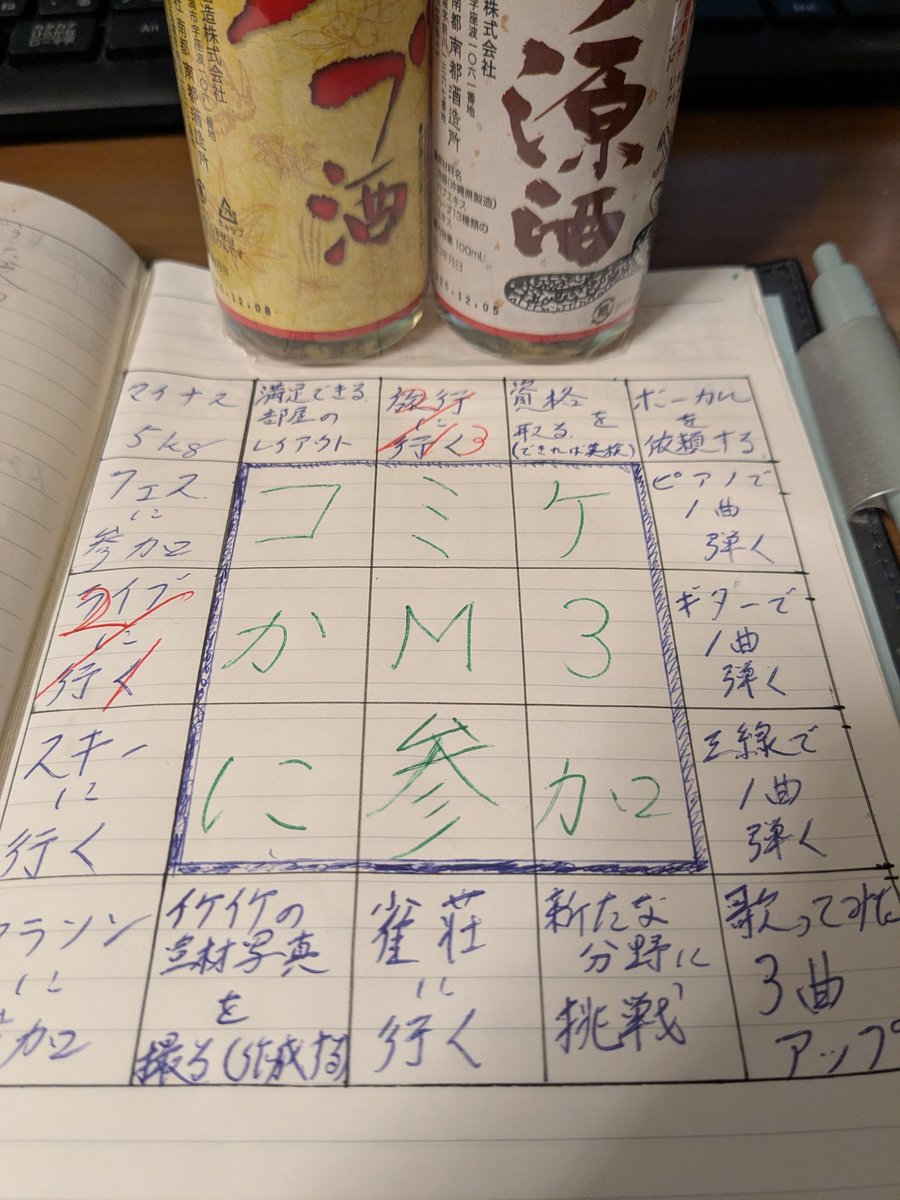 造株式会社
市字座波一〇六一番地
南都酒造所
ブ
酒
25.12.08
株式会社
字座波一〇六一番地
南都酒造所
源
酒
100mL
25.12.05
マイナス
5kg
満足できる
部屋の
レイアウト
旅行
に
行く
3
資格
を
取る
(できれば英検)
ボーカル
を
依頼する
フェス
に
参加
コ
ミ
ケ
ピアノで
1曲
弾く
ライブ
に
行く
か
M
3
ギターで
1曲
弾く
スキー
に
行く
に
参
加
三線で
1曲
弾く
マラソン
に
参加
イケイケの
宣材写真
を
撮る(作成する)
雀荘
に
行く
新たな
分野に
挑戦
歌ってみた
3曲
アップ